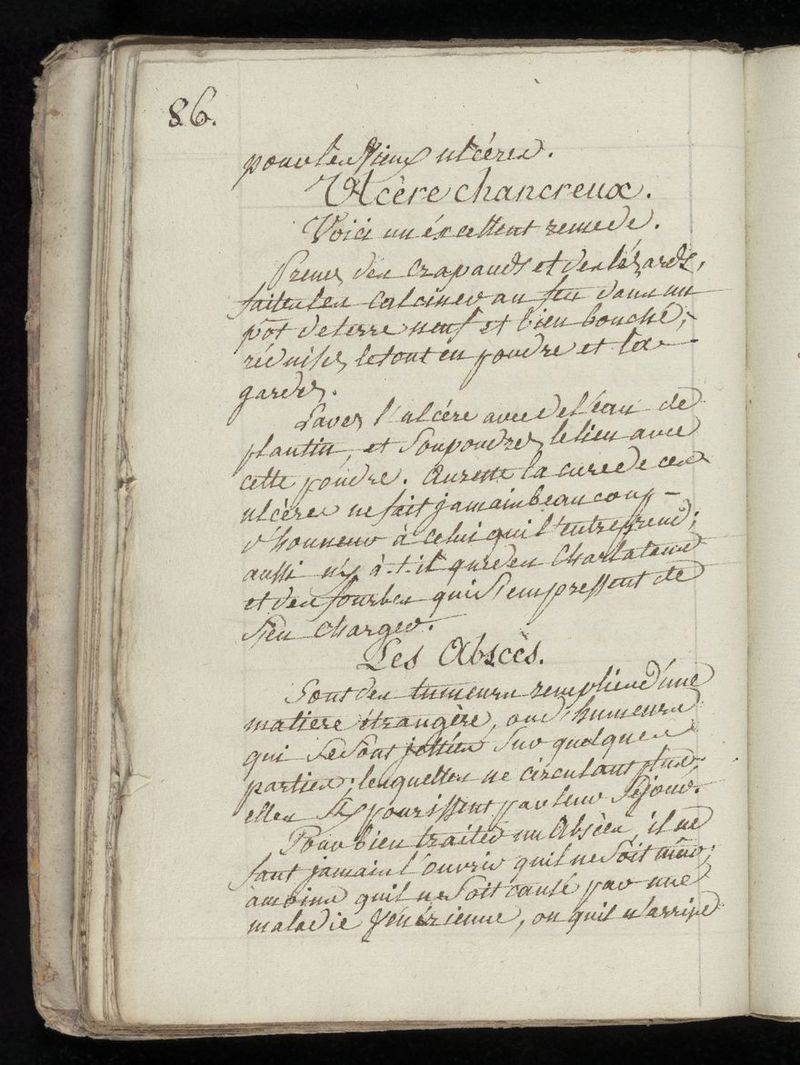 86.
pour les Vieux ulcéres.
Ulcère chancreux.
Voici un éxcellent remede.
Prenez des crapauds et des lézards,
faites les calciner au feu dans un
pot de terre neuf et bien bouché;
réduisez le tout en poudre et la
gardez.
Lavez l'ulcére avec de l'eau de
plantin, et Soupoudrez le lieu avec
cette poudre. Aureste la cure de ces
ulcères ne fait jamais beaucoup
d'honneur à celui qui l'entreprend;
aussi n'y à-t-il que des Charlatans
et des fourbes qui S'empressent de
S'en charger.
Les Abscès.
Sont des tumeurs remplies d'une
matiere étrangère, ou d'humeurs
qui Se Sont jettées Sur quelques
parties; lesquelles ne circulant plus,
elles S'y pourissent par leur Séjour.
Pour bien traiter un Abscès, il ne
faut jamais l'ouvrir qu'il ne Soit mûr;
àmoins qu'il ne Soit causé par une
maladie Vénérienne, ou qu'il n'arrive